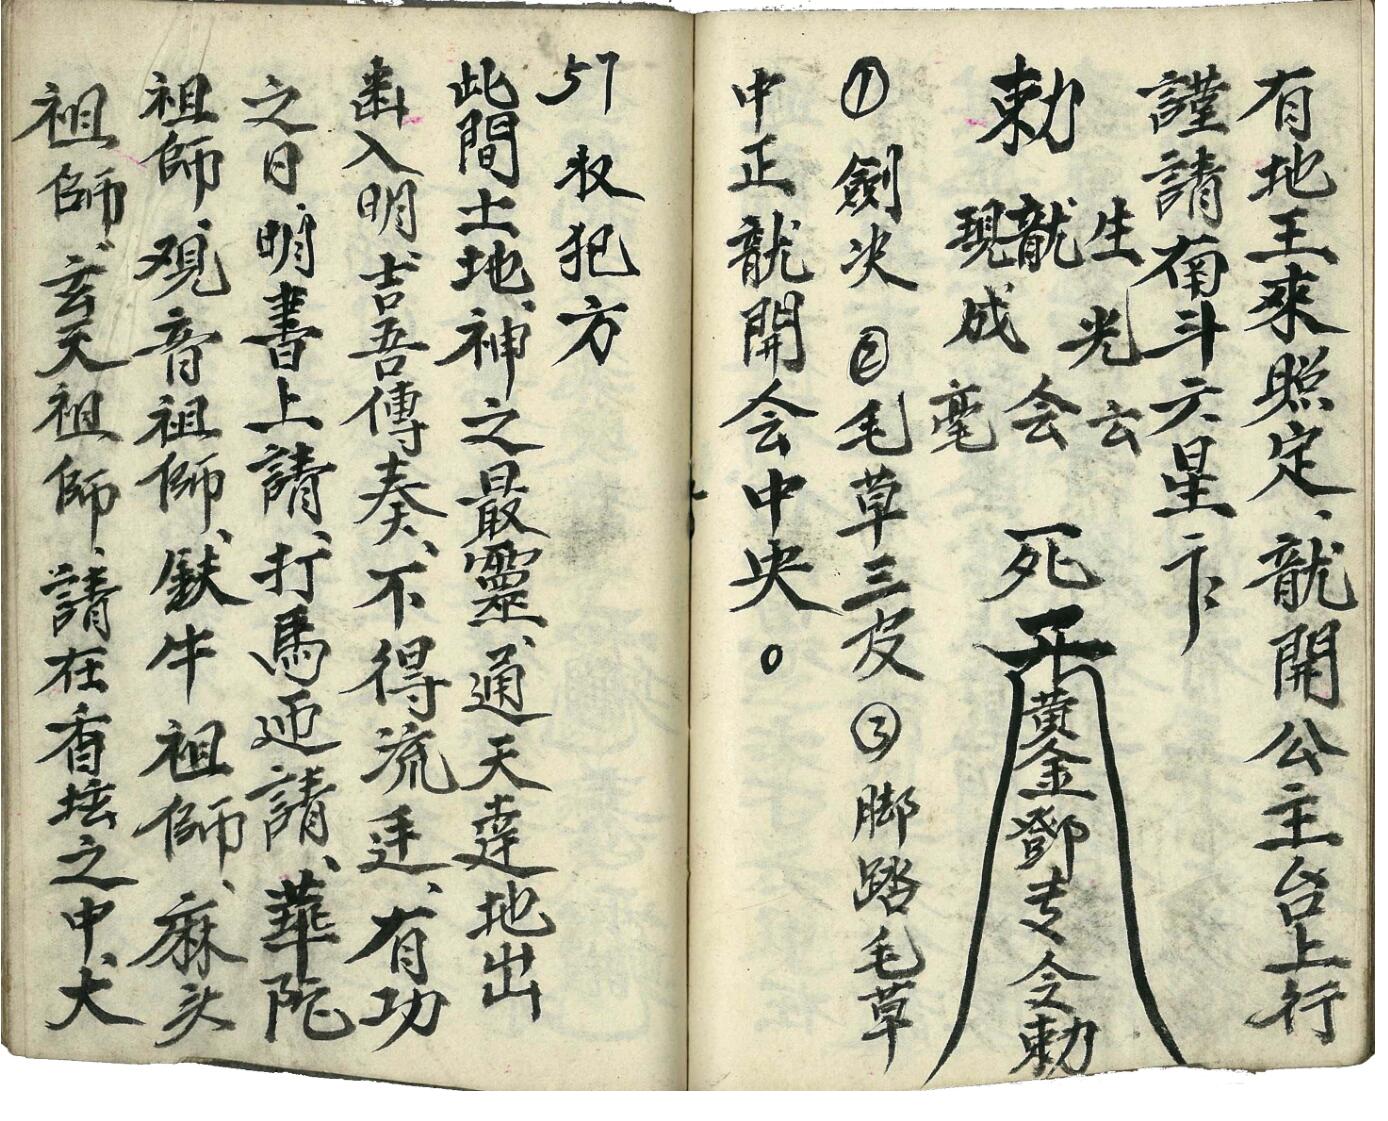 有地王來照定、龍開公主台上行
謹請南斗六星卞
勅
生光云
龍会
現成毫
死
黃金鄧夫令勅
①劍決②毛草三皮③脚踏毛草
中正龍開会中央。
57收犯方
此間土地、神之最靈、通天達地出
幽入明、吉吾傳奏、不得流迋、有功
之日、明書上請、打馬迊請、華陀
祖師、观音祖師、鉄牛祖師、麻头
祖師、玄天祖師、請在香坛之中、犬